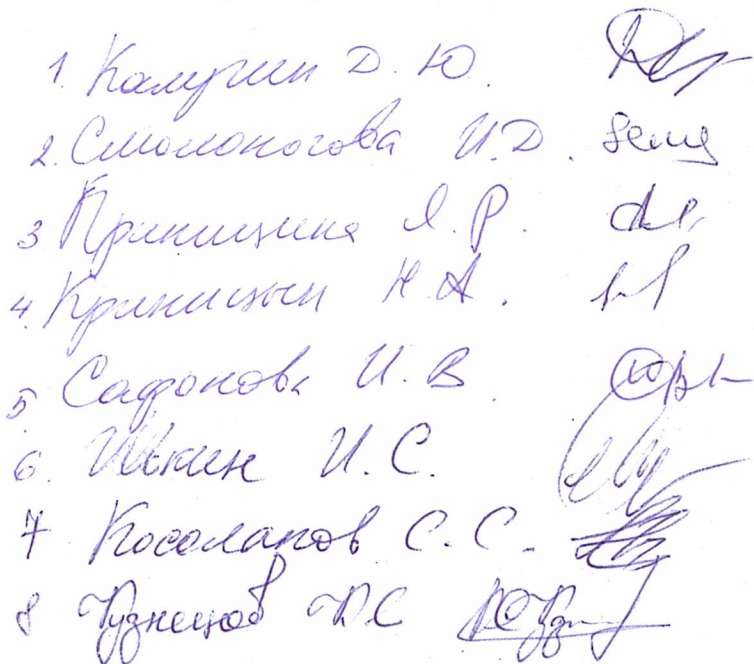 1. Калугин Д. Ю.
2. Смолоногова И.Д.
3 Криницина Я.Р.
4. Криницын Н.А.
5 Сафонова И.В.
6. Ивкин И.С.
7 Косолапов С.С.
8 Кузнецов К.С